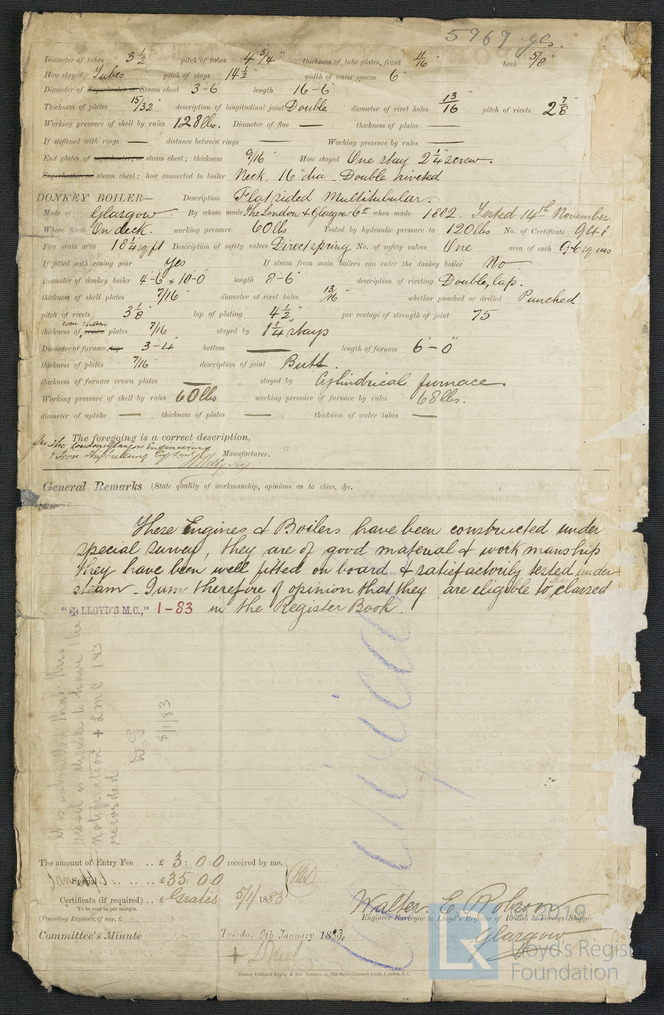 5969 gls.
Diameter of tubes 3 1/2" pitch of tubes 4 3/4" thickness of tube plates, front 11/16" back 5/8"
How stayed Tubes pitch of stays 14 1/2 width of water spaces 6"
Diameter of Superheater or Steam chest 3-6 length 16-6"
Thickness of plates 15/32" description of longitudinal joint Double diameter of rivet holes 13/16" pitch of rivets 2 7/8"
Working pressure of shell by rules 128 lbs. Diameter of flue — thickness of plates —
If stiffened with rings — distance between rings — Working pressure by rules —
End plates of superheater, or steam chest; thickness 9/16" How stayed One stay 2 1/4" screw.
Superheater or steam chest; how connected to boiler Neck. 16" dia - Double riveted
DONKEY BOILER— Description Flat sided Multitubular.
Made at Glasgow By whom made The London & Glasgow Co when made 1882. Tested 14th November
Where fixed On deck. working pressure 60 lbs Tested by hydraulic pressure to 120 lbs No. of Certificate
Fire grate area 18 1/4 sq ft Description of safety valves Direct spring No. of safety valves One area of each 9.6 sq ins
If fitted with easing gear Yes If steam from main boilers can enter the donkey boiler No
Diameter of donkey boiler 4-6 x 10-0 length 8-6" description of riveting Double, lap.
thickness of shell plates 7/16" diameter of rivet holes 13/16" whether punched or drilled Punched
pitch of rivets 3 1/8 lap of plating 4 1/2" per centage of strength joint 75
thickness of plates 7/16 stayed by 1 1/4" stays
Diameter of furnace, top 3-4 bottom — length of furnace 6'-0"
thickness of plates 7/16" description of joint Butt.
thickness of furnace crown plates — stayed by Cylindrical furnace
Working pressure of shell by rules 60 lbs working pressure of furnace by rules 68 lbs.
diameter of uptake — thickness of plates — thickness of water tubes —
The foregoing is a correct description,
for the London Glasgow Engineering
& Iron Shipbuilding Coy Limd Manufacturer.
General Remarks (State quality of workmanship, opinions as to class, &c.
These Engines & Boilers have been constructed under
special survey, they are of good material & workmanship
They have been well fitted on board & satisfactorily tested under
steam. I am therefore of opinion that they are eligible to be classed
"✠ LLOYD'S M.C.," 1-83 in the Register Book.
It is submitted that this
vessel is eligible to have the
notification + LMC 1 83
recorded
8/1/83
The amount of Entry Fee .. £ 3 : 0 : 0 received by me,
Special .. £ 35 : 0 : 0
Certificate (if required) .. £ Gratis 5/1/1883
To be sent as per margin.
(Travelling Expenses, if any, £ )
Walter. C. Robson
Engineer Surveyor to Lloyd's Register of British & Foreign Shipping
Glasgow
Committee's Minute Tuesday 9th January 1883.
2019
LR
Lloyd's Regist
Foundation